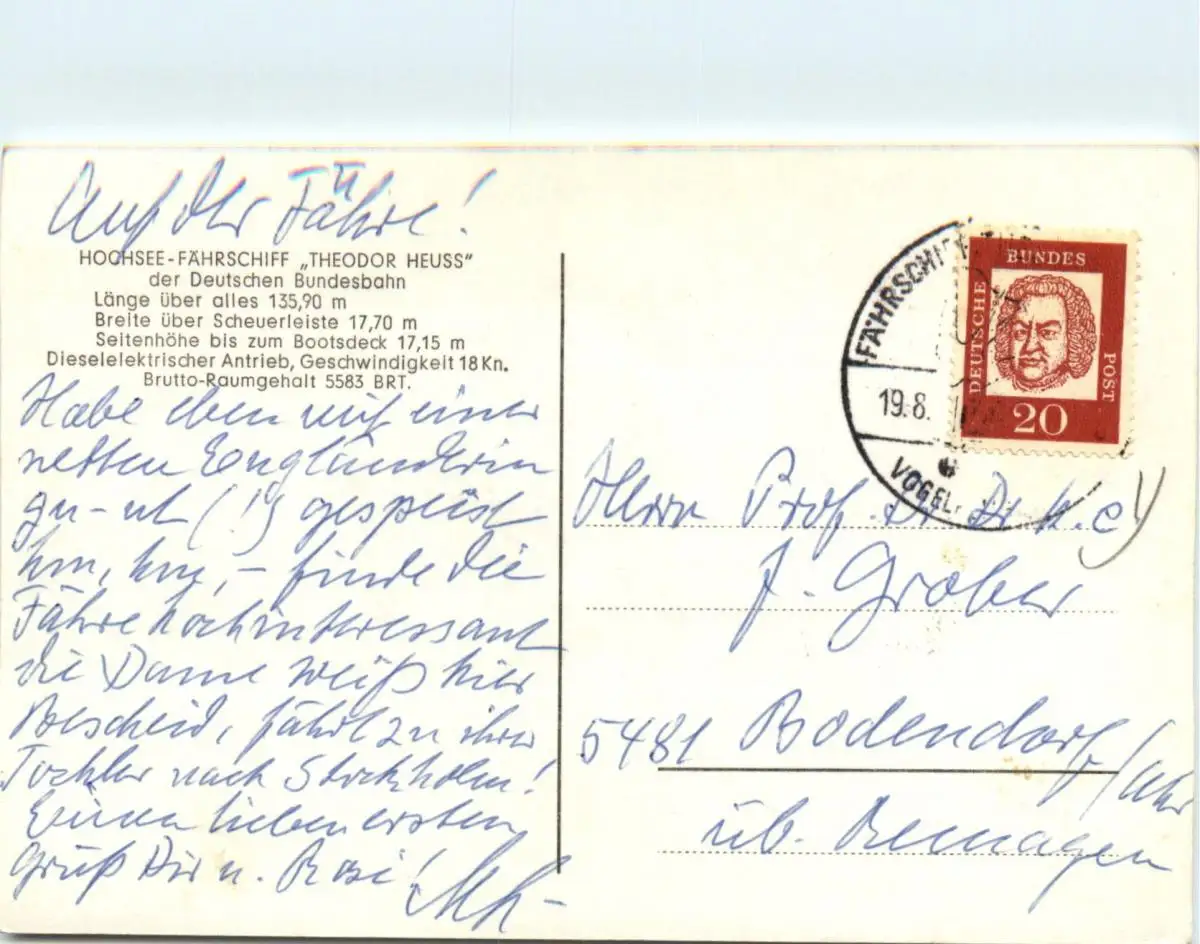 Auf der Fähre!
HOCHSEE-FÄHRSCHIFF „THEODOR HEUSS"
der Deutschen Bundesbahn
Länge über alles 135,90 m
Breite über Scheuerleiste 17,70 m
Seitenhöhe bis zum Bootsdeck 17,15 m
Dieselelektrischer Antrieb, Geschwindigkeit 18 Kn.
Brutto-Raumgehalt 5583 BRT.
Habe eben mit einer
netten Engländerin
(!) gespeist
hm, hm, – finde die
Fähre hochinteressant
die Dame weiß hier
Bescheid, fährt zu ihrer
Tochter nach Stockholm!
Einen lieben ersten
Gruß Dir u. Rosi!
FÄHRSCHIFF
19.8.
VOGEL
DEUTSCHE
BUNDES
POST
20
Herrn Prof. Dr. Dr. h. c
J. Grober
5481 Bodendorf/Ahr
üb. Remagen